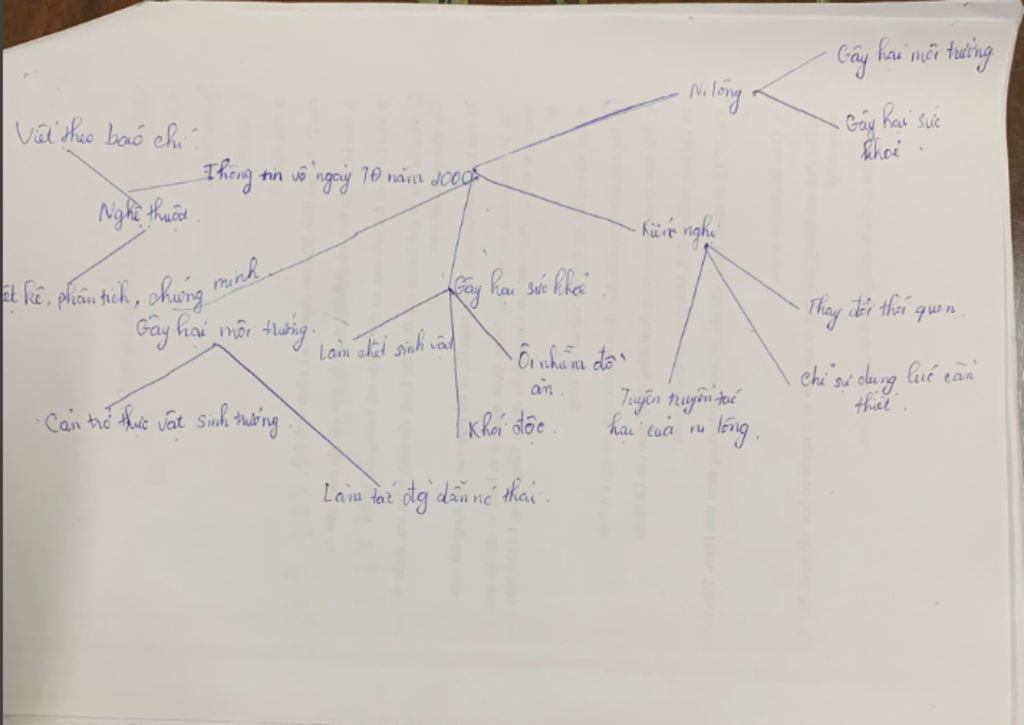 Gây hại môi trường
Ni lông
Gây hại sức
khoẻ.
Viết theo baó chí.
Thông tin về ngày TĐ năm 2000
Nghệ thuật.
Kiến nghị
kê, phân tích, chứng minh.
Gây hại sức khoẻ.
Thay đổi thói quen.
Gây hại môi trường.
Làm chết sinh vật
Ôi nhiễm đồ
ăn.
Chỉ sử dụng lúc cần
thiết.
Tuyên truyền tác
hại của ni lông.
Cản trở thực vật sinh trưởng.
Khói độc.
Làm tắc đg dẫn nc thải.